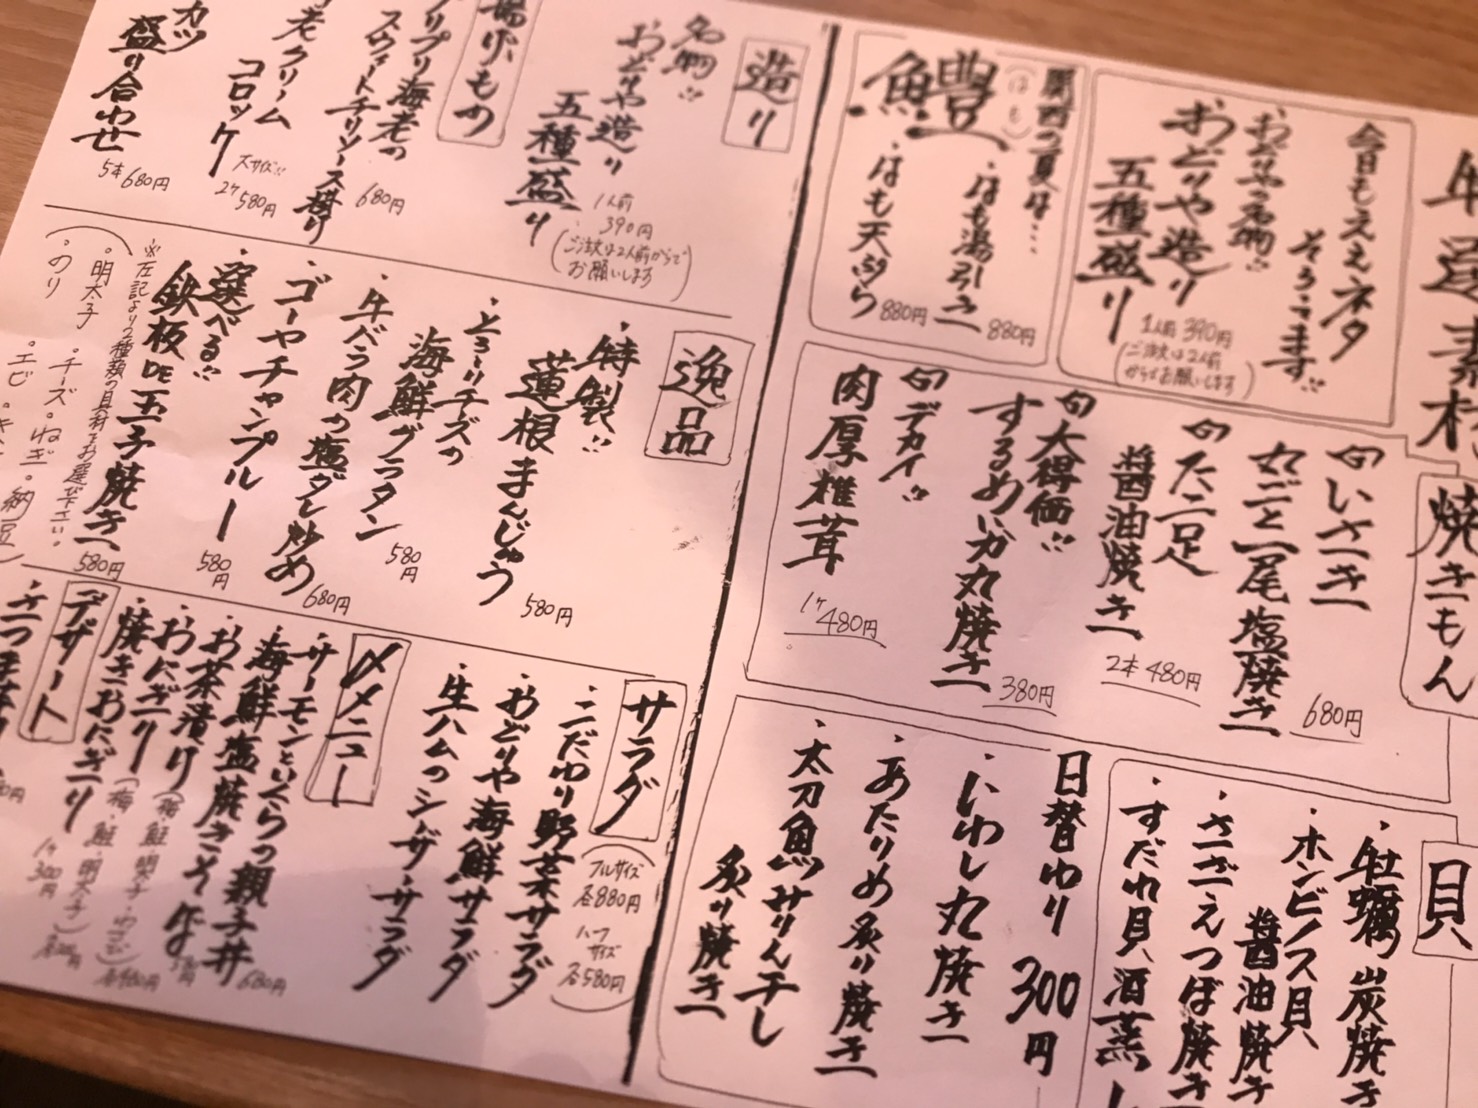 今日もええネタ
そろってます!!
おどりやの名物!!
おどりや造り
五種盛り
1人前 390円
(ご注文は2人前
からでお願いします)
関西の夏は…
鱧
(はも)
・はも湯引き
880円
・はも天ぷら
880円
焼きもん
いさき
丸ごと一尾塩焼き
680円
たこ足
醤油焼き
2本 480円
大得価!!
するめいか丸焼き
380円
デカイ!!
肉厚椎茸
1ケ 480円
貝
・牡蠣炭焼き
・ホンビノス貝
醤油焼き
・さざえつぼ焼き
・すだれ貝酒蒸し
日替わり 300円
・いわし丸焼き
・あたりめ炙り焼き
・太刀魚みりん干し
炙り焼き
造り
名物!!
おどりや造り
五種盛り
1人前
390円
(ご注文は2人前からで
お願いします)
揚げもの
プリプリ海老の
スウィートチリソース掛け
680円
老クリーム
コロッケ
大サイズ!!
2ケ 580円
カツ
盛り合わせ
5本 680円
逸品
・特製!!
蓮根まんじゅう
580円
・とろ〜りチーズの
海鮮グラタン
580円
・牛バラ肉の塩ダレ炒め
680円
・ゴーヤチャンプルー
580円
・選べる!!
鉄板DE玉子焼き
580円
※左記より2種類の具材をお選び下さい。
・明太子・チーズ・ねぎ・納豆
・のり
・エビ
サラダ
フルサイズ
各880円
ハーフ
サイズ
各580円
・こだわり野菜サラダ
・おどりや海鮮サラダ
・生ハムのシーザーサラダ
〆メニュー
・サーモンといくらの親子丼
680円
・海鮮塩焼きそば
・お茶漬け(梅・鮭・明太子・わさび)
各480円
・おにぎり(梅・鮭・明太子)
・焼きおにぎり
1ケ
300円
デザート